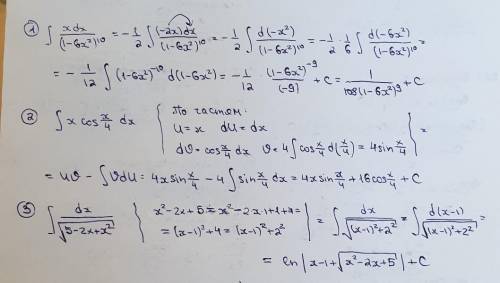 ① ∫ xdx/(1-6x²)¹⁰ = -1/2 ∫ (-2x)dx/(1-6x²)¹⁰ = -1/2 ∫ d(-x²)/(1-6x²)¹⁰ = -1/2 · 1/6 ∫ d(-6x²)/(1-6x²)¹⁰ =
= -1/12 ∫ (1-6x²)⁻¹⁰ d(1-6x²) = -1/12 · (1-6x²)⁻⁹/(-9) + C = 1/(108(1-6x²)⁹) + C
② ∫ x cos x/4 dx { По частям:
U = x dU = dx
dv = cos x/4 dx v = 4∫cos x/4 d(x/4) = 4sin x/4 } =
= uv - ∫vdu = 4x sin x/4 - 4∫ sin x/4 dx = 4x sin x/4 + 16cos x/4 + C
③ ∫ dx/√(5-2x+x²) { x²-2x+5 = x²-2·x·1+1+4 =
= (x-1)²+4 = (x-1)²+2² } = ∫ dx/√((x-1)²+2²) = ∫ d(x-1)/√((x-1)²+2²) =
= ln|x-1+√(x²-2x+5)| + C